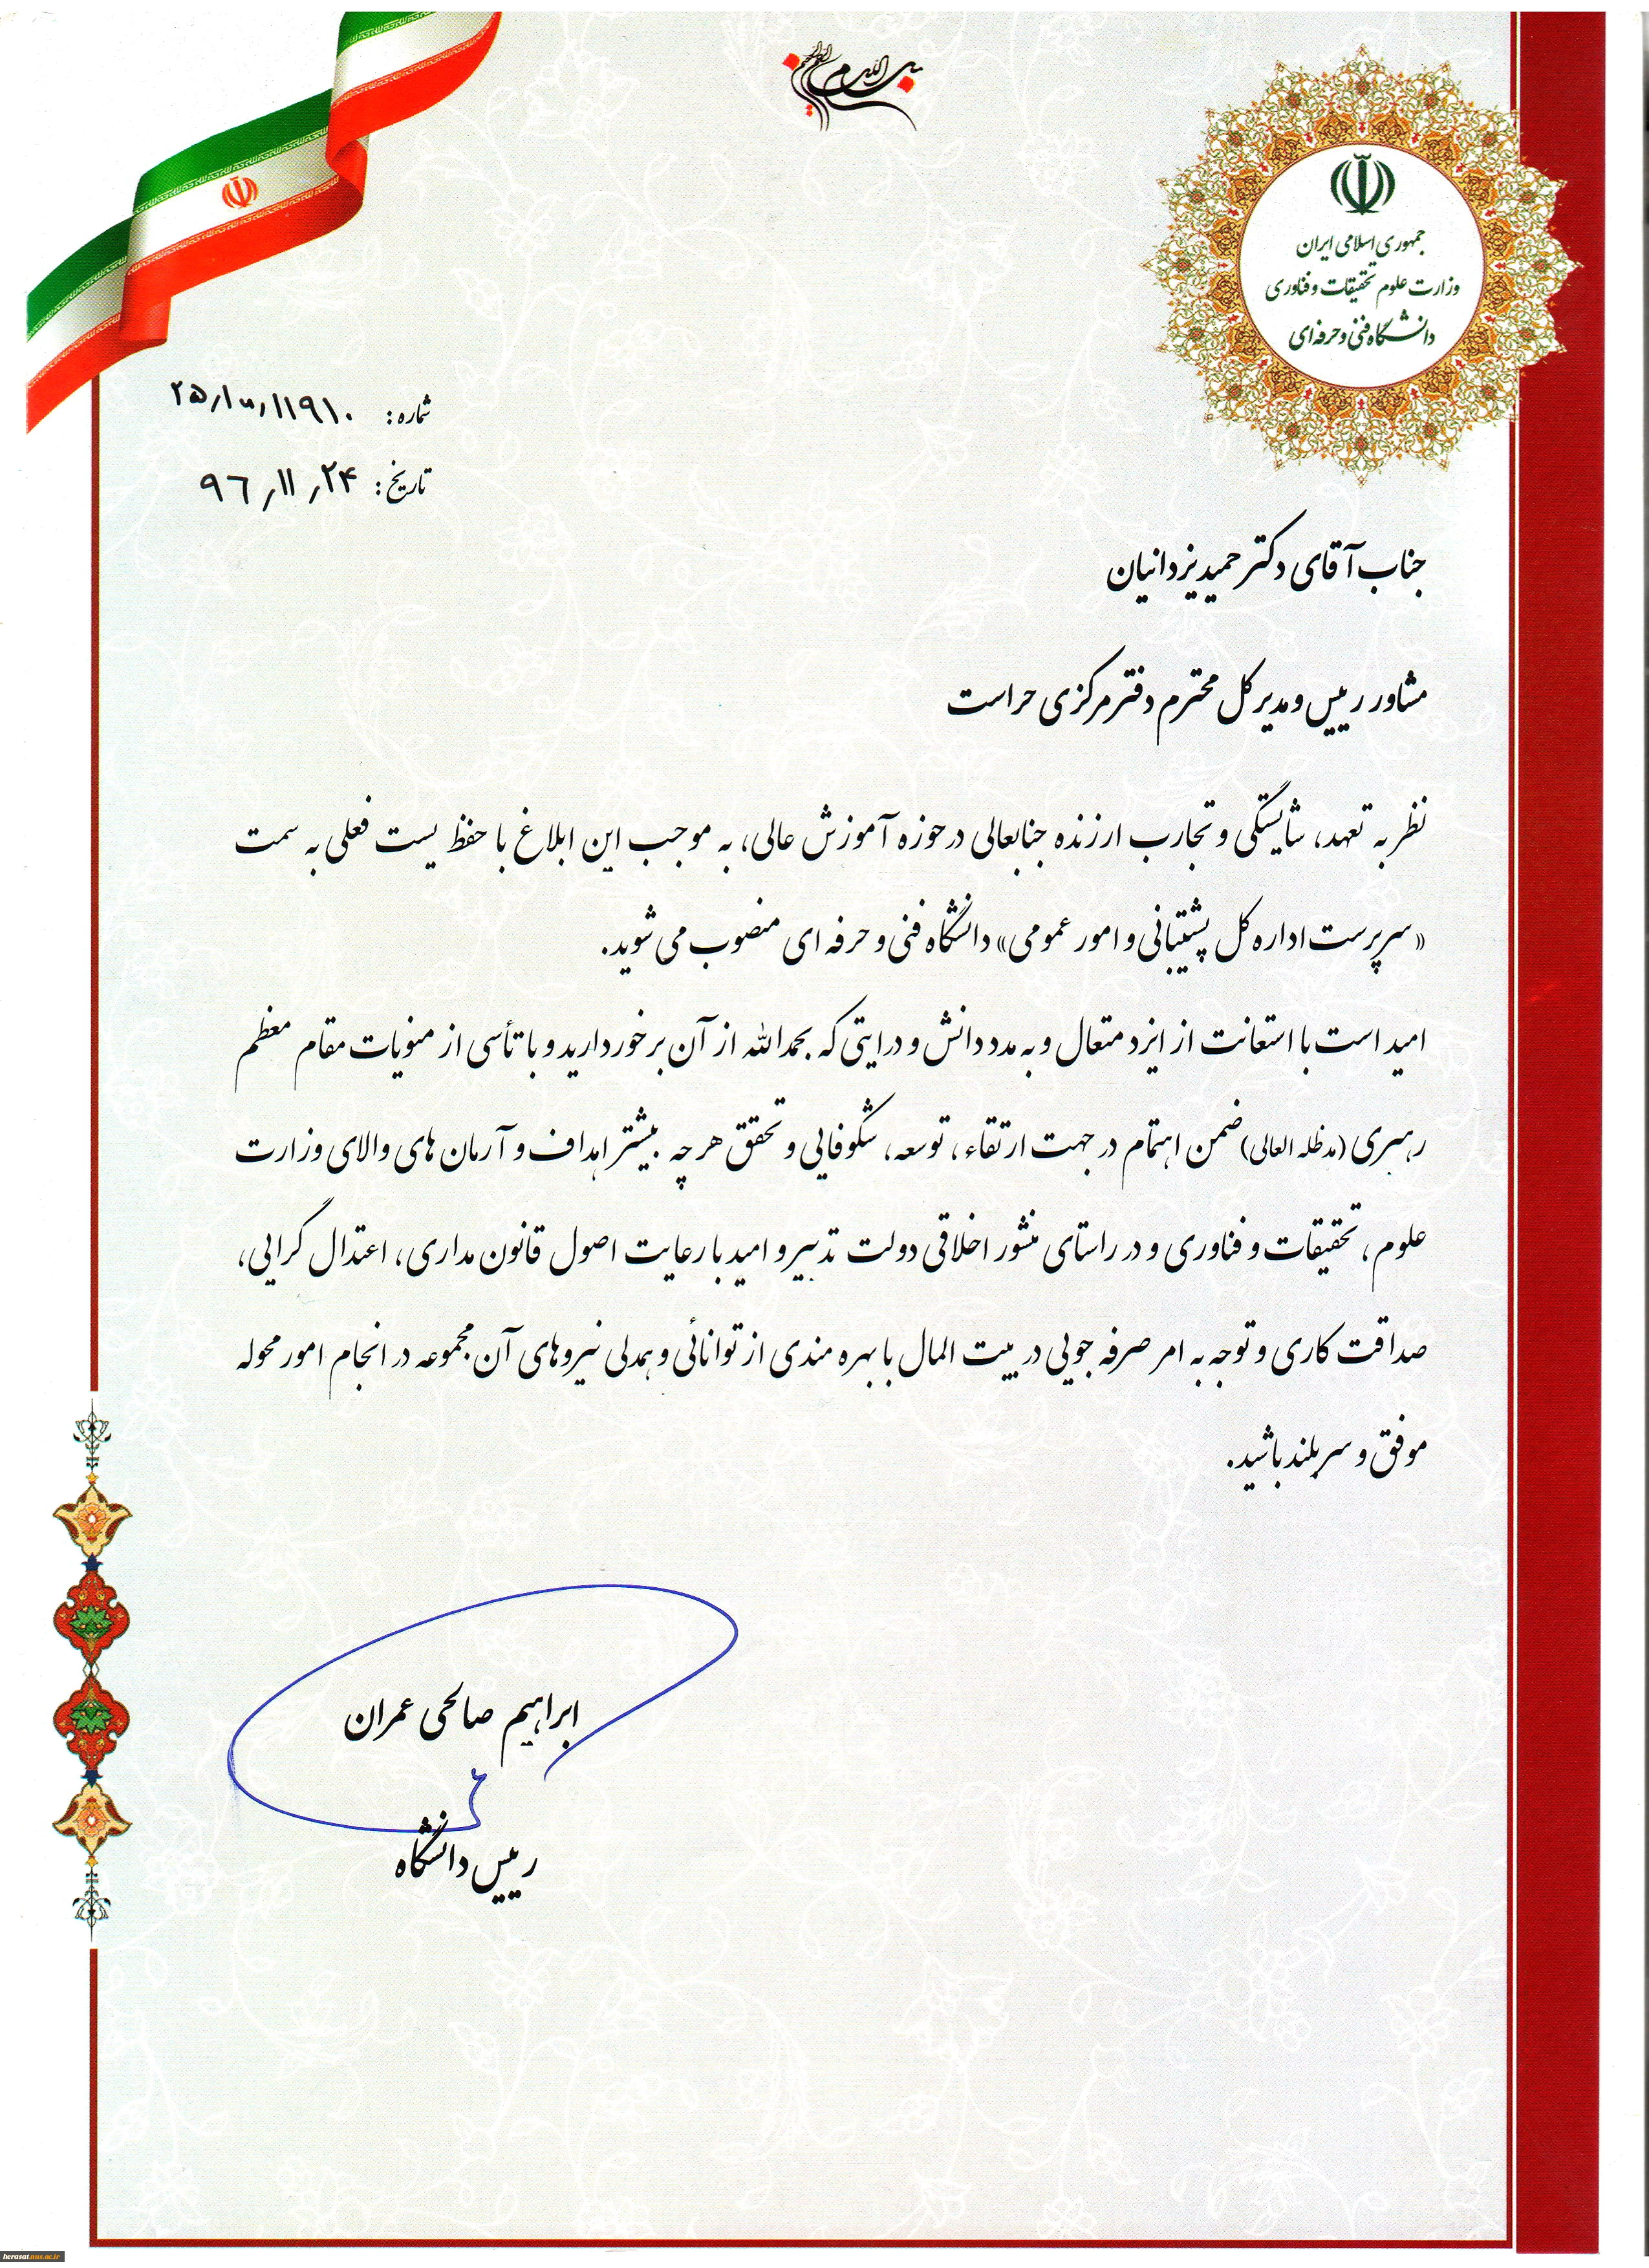 بسم الله الرحمن الرحیم
جمهوری اسلامی ایران
وزارت علوم تحقیقات و فناوری
دانشگاه فنی و حرفه‌ای
شماره:
تاریخ: ۹۶/۱۱/۲۴
جناب آقای دکتر حمید یزدانیان
مشاور رییس و مدیر کل محترم دفتر مرکزی حراست
نظر به تعهد، شایستگی و تجارب ارزنده جنابعالی در حوزه آموزش عالی، به موجب این ابلاغ با حفظ پست فعلی به سمت
«سرپرست اداره کل پشتیبانی و امور عمومی» دانشگاه فنی و حرفه ای منصوب می شوید.
امید است با استعانت از ایزد متعال و به مدد دانش و درایتی که بحمدالله از آن برخوردارید و با تأسی از منویات مقام معظم
رهبری (مدظله العالی) ضمن اهتمام در جهت ارتقاء، توسعه، شکوفایی و تحقق هر چه بیشتر اهداف و آرمان های والای وزارت
علوم، تحقیقات و فناوری و در راستای منشور اخلاقی دولت تدبیر و امید با رعایت اصول قانون مداری، اعتدال گرایی،
صداقت کاری و توجه به امر صرفه جویی در بیت المال با بهره مندی از توانائی و همدلی نیروهای آن مجموعه در انجام امور محوله
موفق و سربلند باشید.
ابراهیم صالحی عمران
رییس دانشگاه
herasat.nus.ac.ir